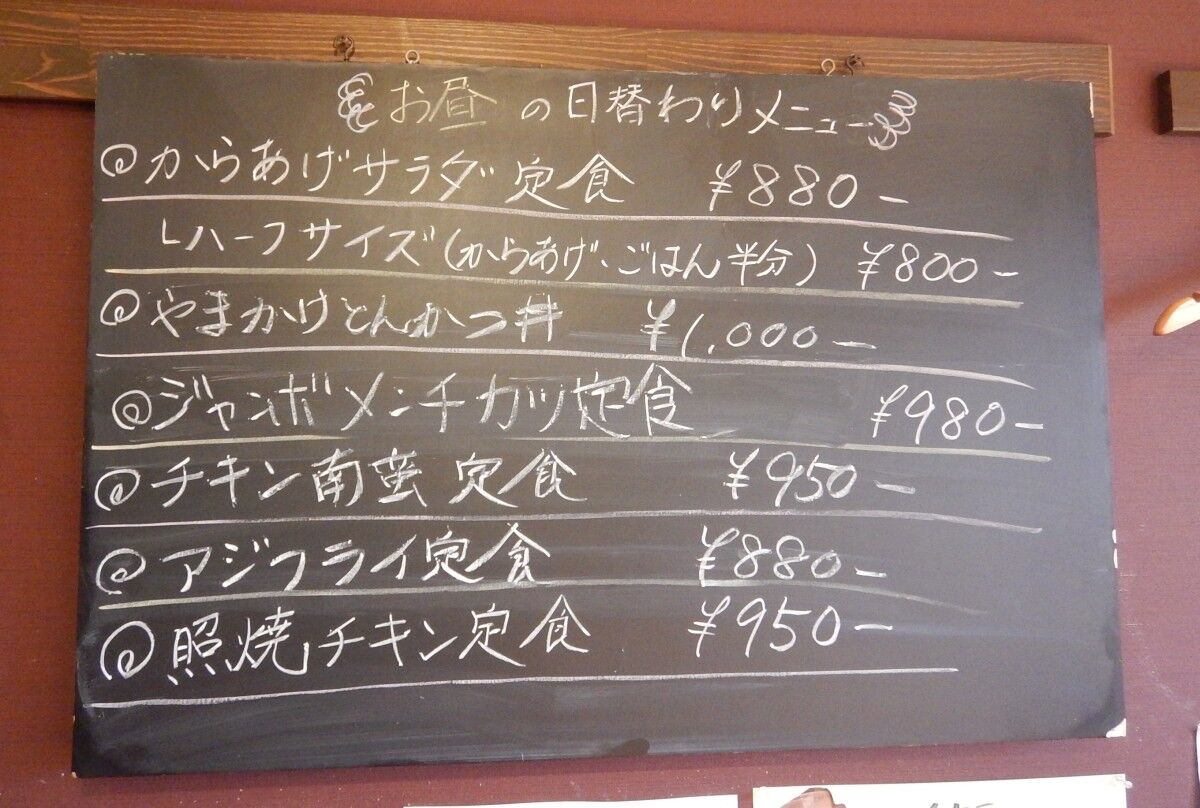 お昼の日替わりメニュー
◎からあげサラダ定食 ¥880-
└ハーフサイズ(からあげ、ごはん半分) ¥800-
◎やまかけとんかつ丼 ¥1,000-
◎ジャンボメンチカツ定食 ¥980-
◎チキン南蛮定食 ¥950-
◎アジフライ定食 ¥880-
◎照焼チキン定食 ¥950-